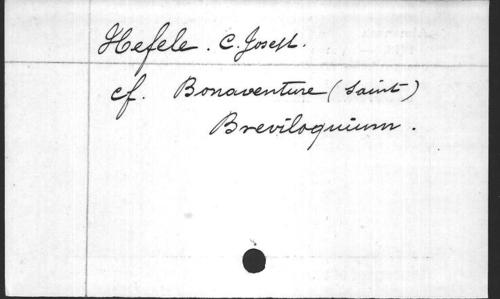 Hefele. C. Joseph.
cf. Bonaventure (Saint)
Breviloquium.